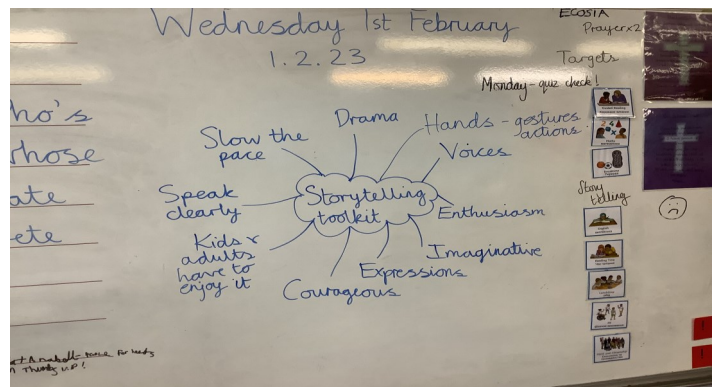 Wednesday 1st February
1.2.23
ECOSIA
Prayer x2
Targets
Monday - quiz check!
ho's
whose
ate
ete
Storytelling
toolkit
Drama
Hands - gestures
actions
Voices
Enthusiasm
Imaginative
Expressions
Courageous
Kids &
adults
have to
enjoy it
Speak
clearly
Slow the
pace
Story
telling